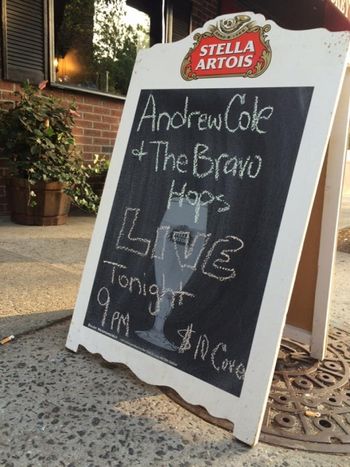 STELLA
ARTOIS
Andrew Cole
+ The Bravo
Hops
LIVE
Tonight
9 PM
$10 Cover